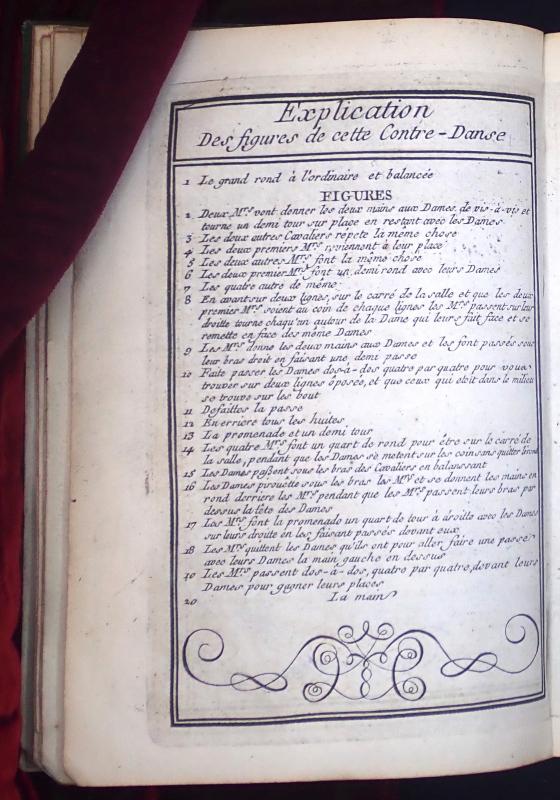 Explication
Des figures de cette Contre-Danse
1 Le grand rond à l'ordinaire et balancée
FIGURES
2 Deux Mrs vont donner les deux mains aux Dames de vis-à-vis et
tourne un demi tour sur place en restant avec les Dames
3 Les deux autres Cavaliers repete la même chose
4 Les deux premiers Mrs reviennent à leur place
5 Les deux autres Mrs font la même chose
6 Les deux premier Mrs font un demi rond avec leurs Dames
7 Les quatre autre de même
8 En avant sur deux lignes, sur le carré de la salle et que les deux
premier Mrs soient au coin de chaque lignes les Mrs passent sur leur
droitte tourne chaqu'un autour de la Dame qui leurs fait face et se
remette en face des même Dames
9 Les Mrs donne les deux mains aux Dames et les font passés sous
leur bras droit en faisant une demi passe
10 Faite passer les Dames dos-à-dos quatre par quatre pour vous
trouver sur deux lignes oposée, et que ceux qui etoit dans le milieu
se trouve sur les bout
11 Defaittes la passe
12 En erriere tous les huites
13 La promenade et un demi tour
14 Les quatre Mrs font un quart de rond pour être sur le carré de
la salle, pendant que les Dames se metent sur les coin sans quitter
15 Les Dames paßent sous les bras des Cavaliers en balanssant
16 Les Dames pirouëtte sous les bras les Mrs et se donnent les mains en
rond derriere les Mrs pendant que les Mrs passent leurs bras par
dessus la tête des Dames
17 Les Mrs font la promenade un quart de tour à droitte avec les Dames
sur leurs droite en les faisant passés devant eux
18 Les Mrs quittent les Dames qu'ils ont pour aller faire une passe
avec leurs Dames la main gauche en dessus
19 Les Mrs passent dos-à-dos, quatre par quatre, devant leurs
Dames pour gagner leurs places
20 La main